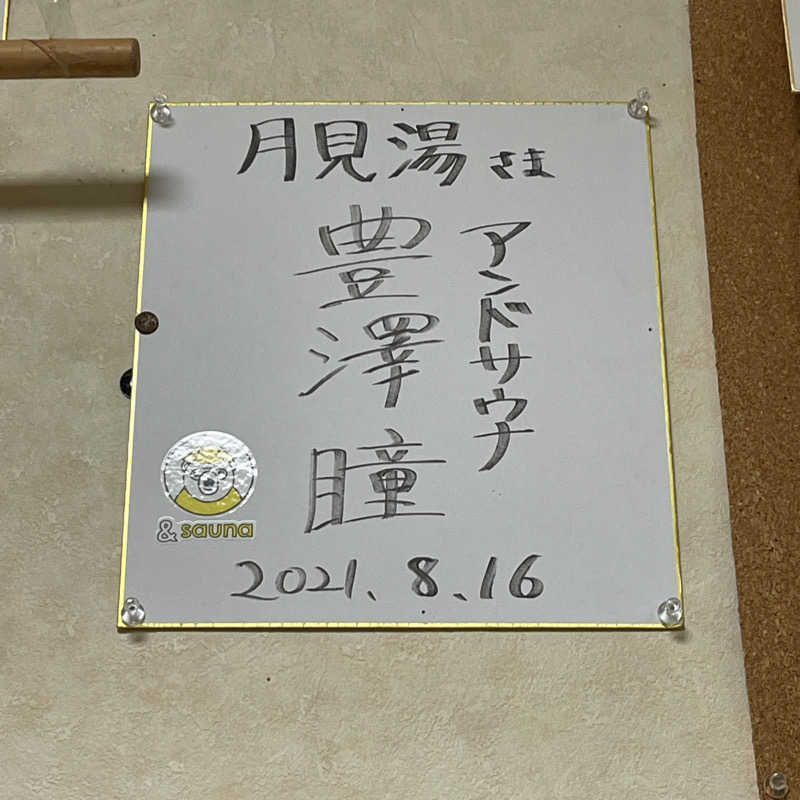 月見湯さま
アンドサウナ
豊澤瞳
2021.8.16
&sauna